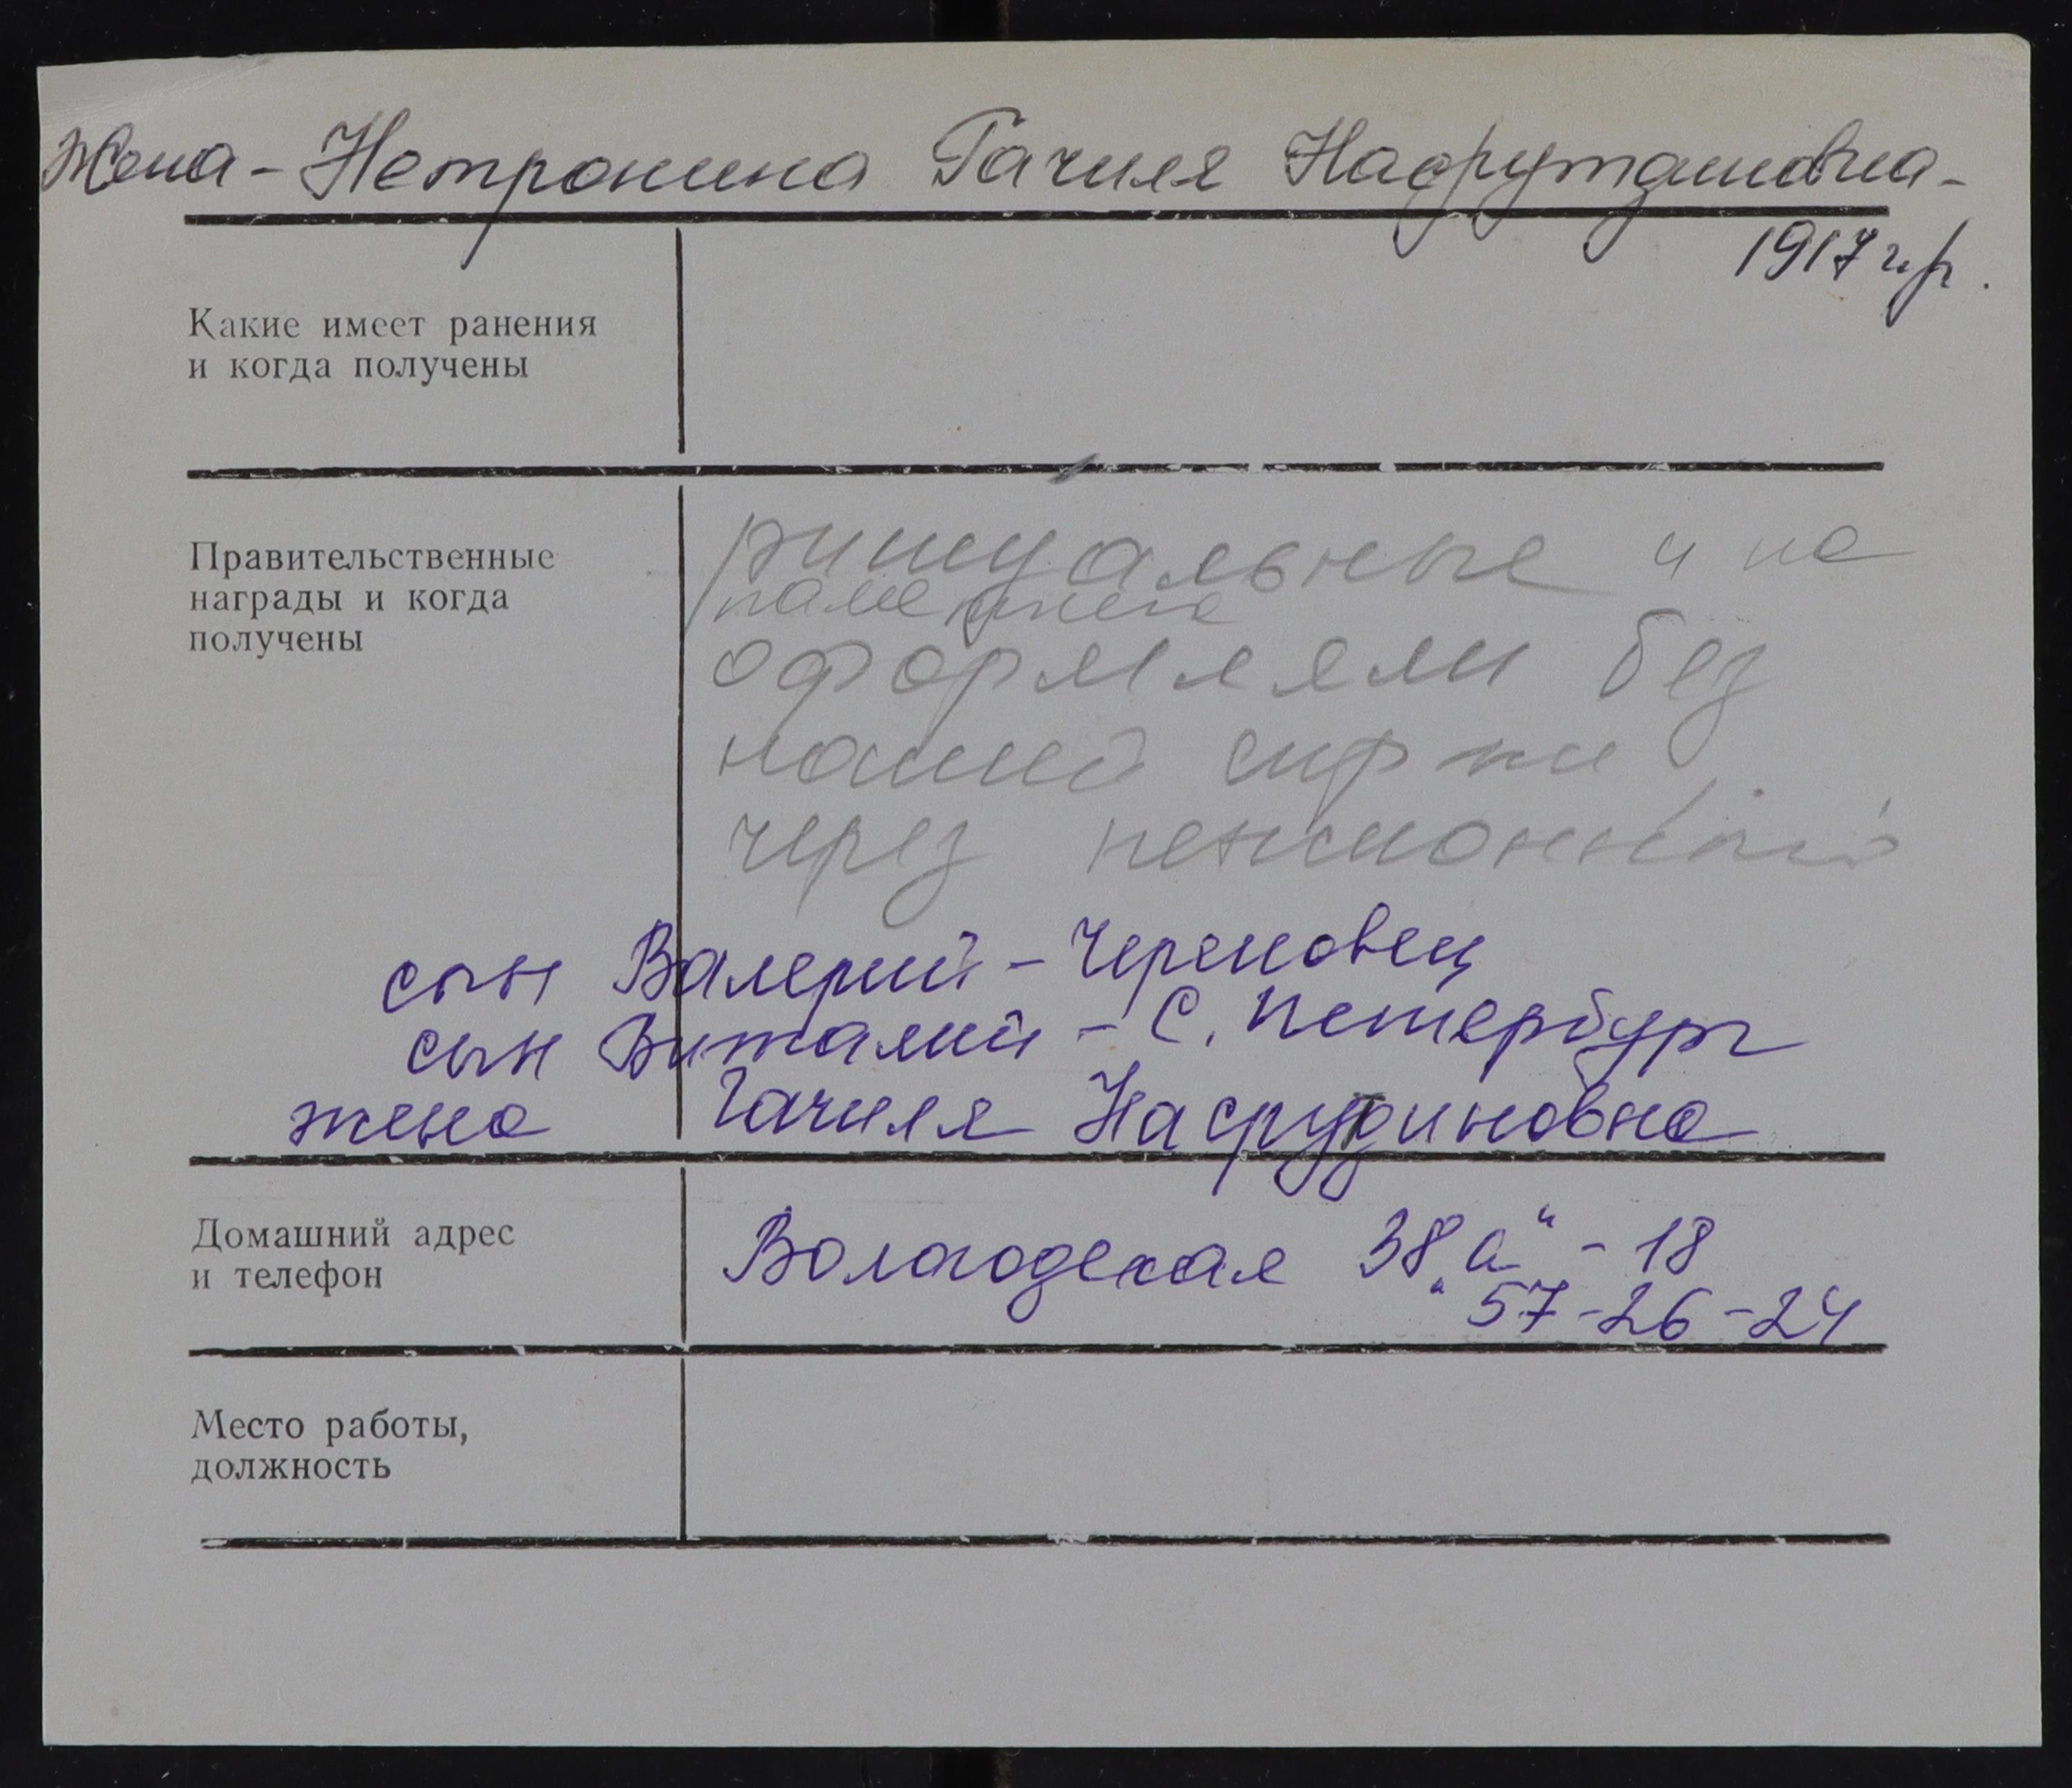 Жена - Нетронина Гачиля Насрутдиновна -
1917 г.р.
Какие имеет ранения
и когда получены
Правительственные
награды и когда
получены
ритуальные и на
памятник
оформляли без
нашей спр-ки
через пенсионный
сын Валерий - Череповец
сын Виталий - С. Петербург
жена Гачиля Насрутдиновна
Домашний адрес
и телефон
Вологодская 38 „а“ - 18
57-26-24
Место работы,
должность